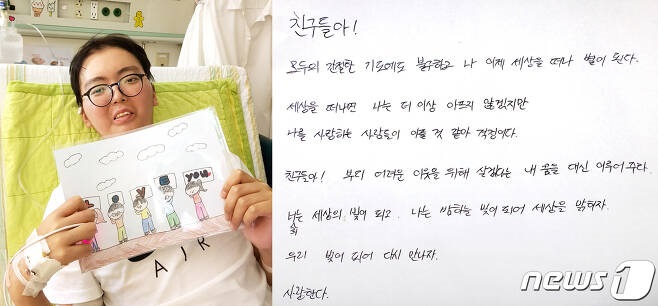 YOU
AIR
친구들아!
모두의 간절한 기도에도 불구하고 나 이제 세상을 떠나 별이 된다.
세상을 떠나면 나는 더 이상 아프지 않겠지만
나를 사랑하는 사람들이 아플 것 같아 걱정이다.
친구들아! 부디 어려운 이웃을 위해 살겠다는 내 꿈을 대신 이루어주라.
너는 세상의 빛이 되고, 나는 밤하늘 빛이 되어 세상을 밝히자.
우리 빛이 되어 다시 만나자.
사랑한다.
news1